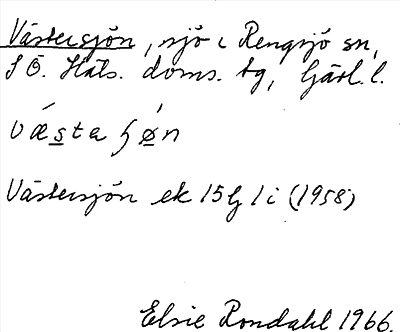 Västersjön, sjö i Rengsjö sn,
S Ö. Häls. doms. tg, Gävl. l.
vǽstaʃǿn
Västersjön ek 15G 1i (1958)
Elsie Rondahl 1966.